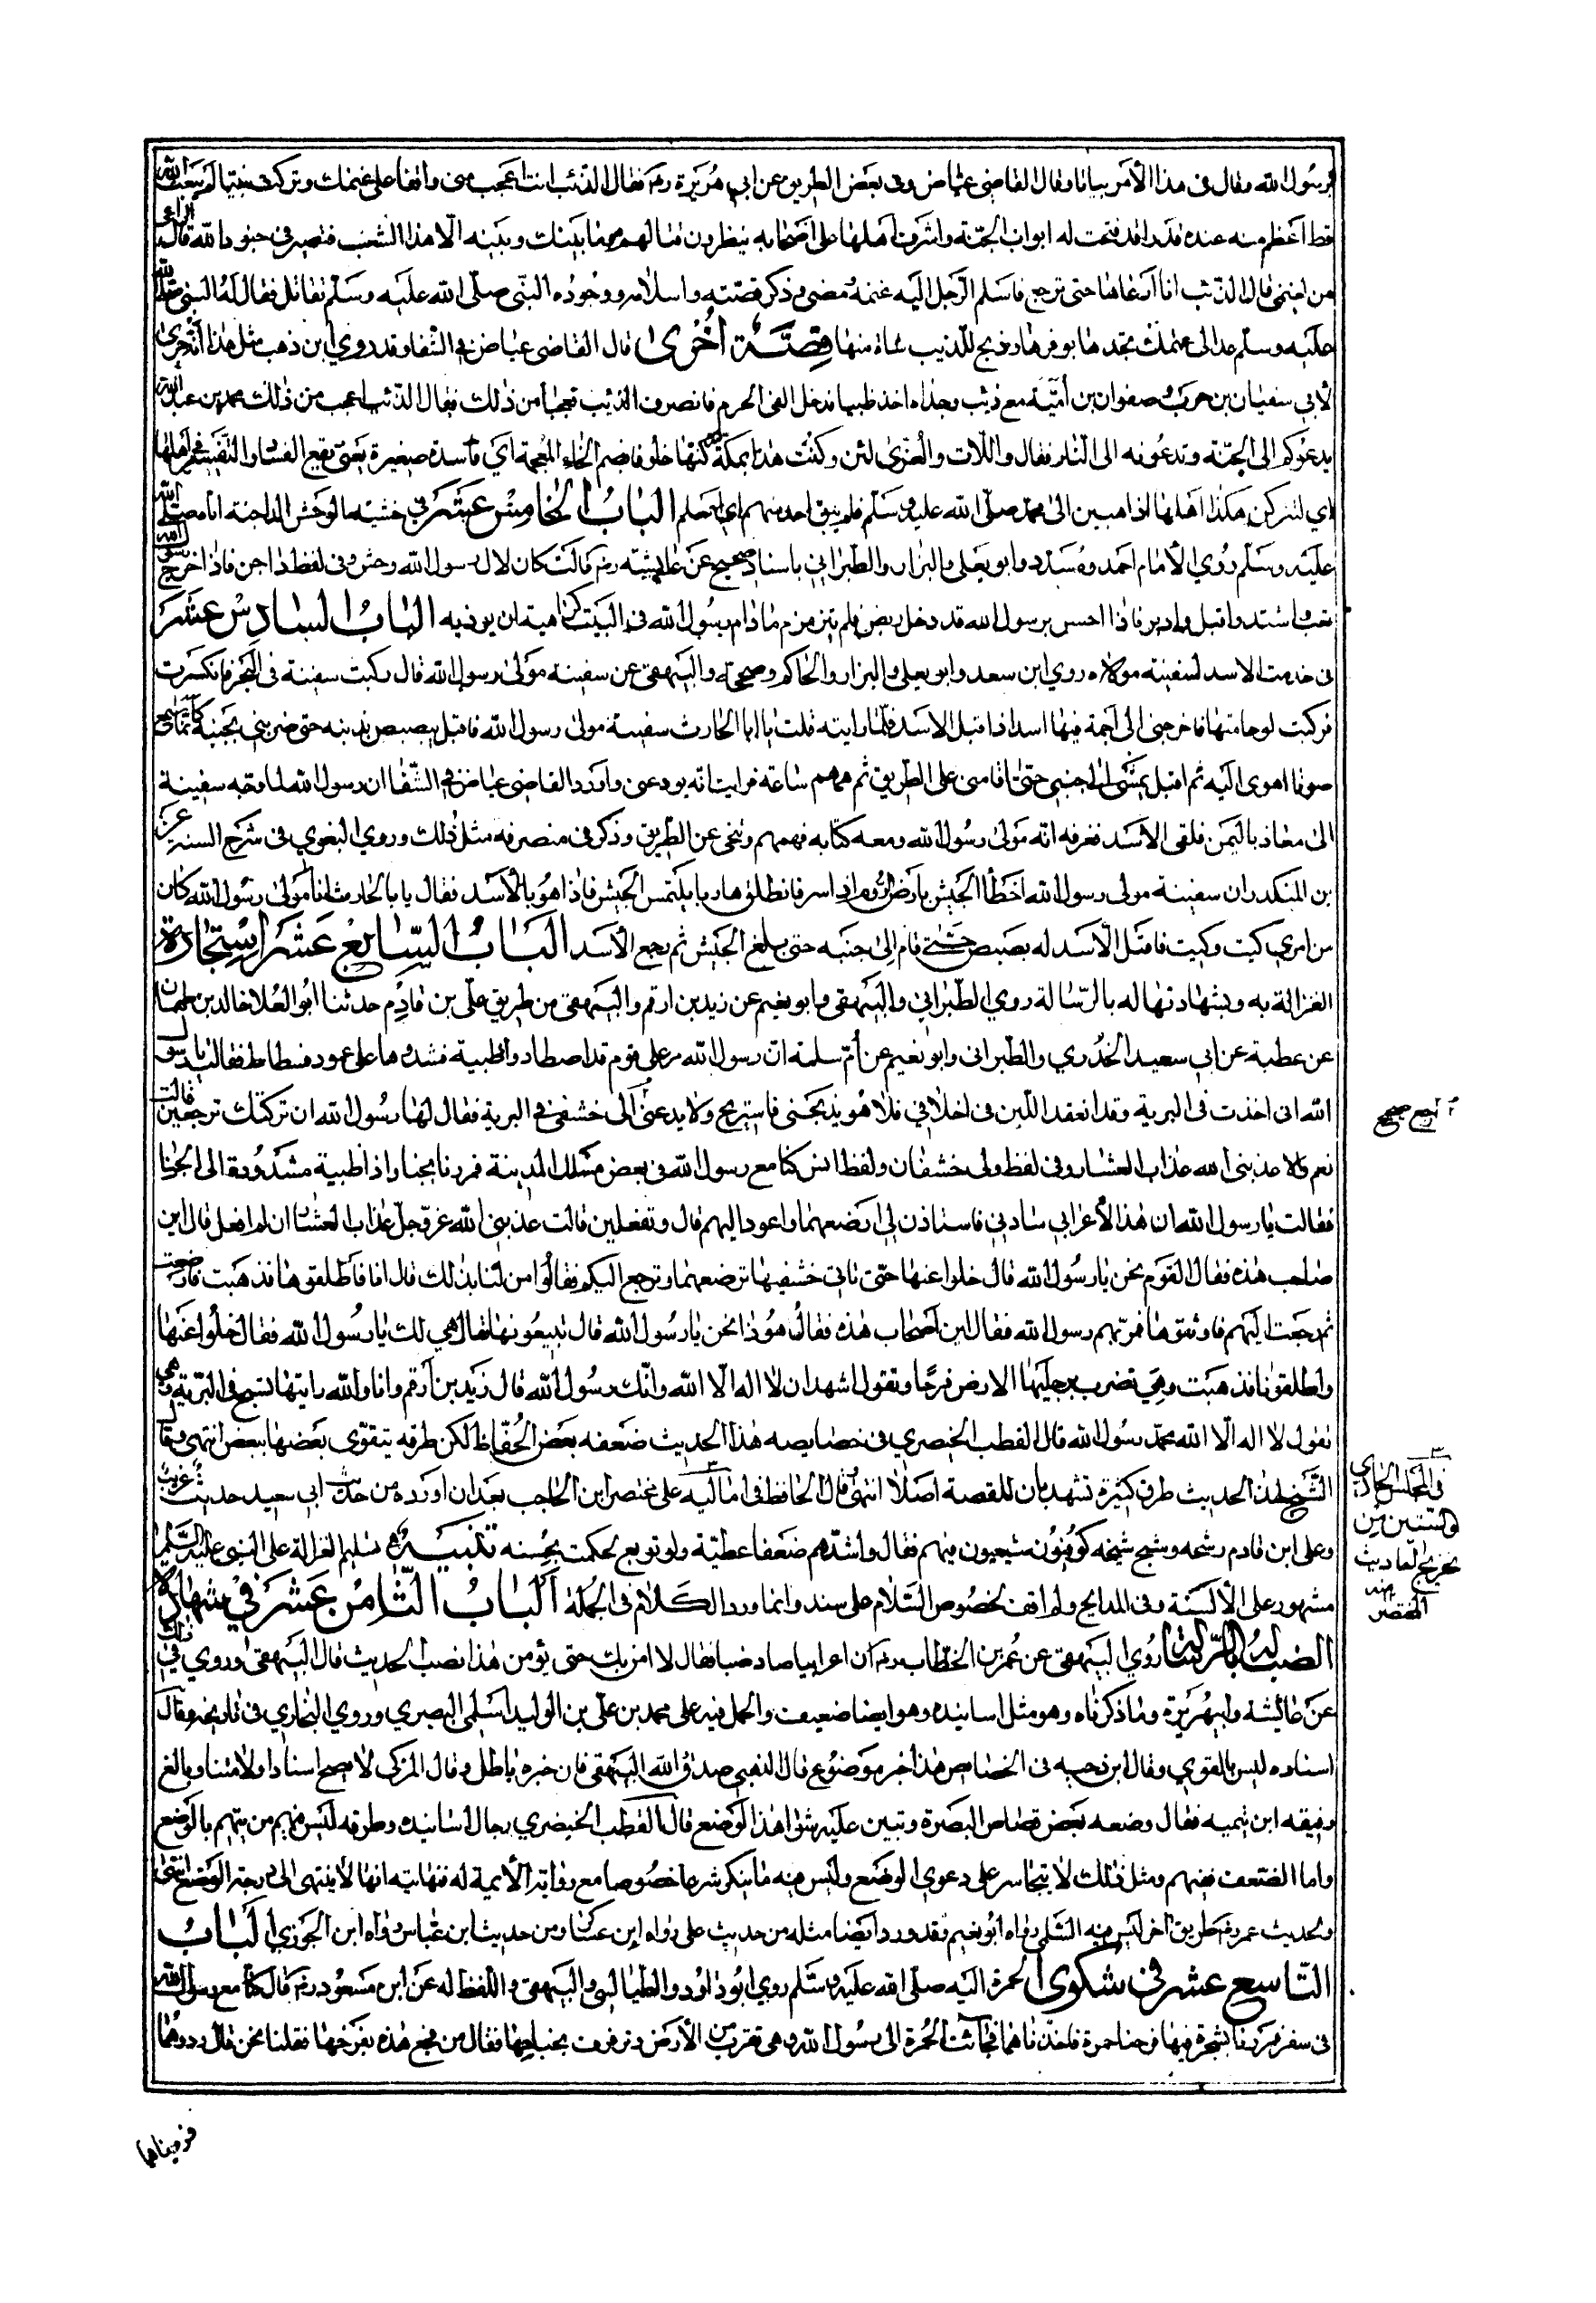 برسول الله وقال في هذا الأمر بيانا وقال القاضي عياض وفي بعض الطريق عن ابي هريرة رضه فقال الذئب انت اعجب مني واقفا على غنمك وتركت نبيا لم يبعث الله
قط اعظم منه عنده قدرا قد فتحت له ابواب الجنة واشرف اهلها على اصحابه ينظرون قتالهم وما بينك وبينه الا هذا الشعب فتصير في جنود الله قال الراعي
من لغنمي قال الذئب انا ارعاها حتى ترجع فاسلم الرجل اليه غنمه ومضى وذكر قصته واسلامه ووجوده النبي صلى الله عليه وسلم يقاتل فقال له النبي صلى الله
عليه وسلم عد الى غنمك تجدها بوفرها وذبح للذيب شاة منها قصة أخرى قال القاضي عياض في الشفا وقد روي ابن وهب مثل هذا انه جرى
لأبي سفيان بن حرب وصفوان بن أمية مع ذئب وجداه اخذ ظبيا فدخل الظبي الحرم فانصرف الذئب فعجبا من ذلك فقال الذئب اعجب من ذلك محمد بن عبد الله
يدعوكم الى الجنة وتدعونه الى النار فقال واللات والعزى لئن ذكرت هذا بمكة لتتركنها خلوفا بضم الخاء المعجمة اي فاسدة صغيرة يعني يقع الفساد والتغيير في اهلها
عليه وسلم روي الأمام احمد ومسدد وابو يعلى والبزار والطبراني باسناد صحيح عن عايشة رضه قالت كان لآل رسول الله وحش وفي لفظ داجن فاذا خرج رسول الله
لعب واشتد واقبل وادبر فاذا احس برسول الله قد دخل ربض فلم يترمرم ما دام رسول الله في البيت كراهية ان يوذيه الباب السادس عشر
في خدمت الاسد لسفينة مولاه روي ابن سعد وابو يعلى والبزار والحاكم وصححه والبيهقي عن سفينة مولى رسول الله قال ركبت سفينة في البحر فانكسرت
فركبت لوحا منها فاخرجني الى اجمة فيها اسد اذا قبل الاسد فلما رايته قلت يا ابا الحارث سفينة مولى رسول الله فاقبل يبصبص بذنبه حتى ضربني بجنبيه كلما سمع
صوتا اهوى اليه ثم اقبل يمشي الى جنبي حتى اقامني على الطريق ثم همهم ساعة فرايت انه يودعني واورد القاضي عياض في الشفا ان رسول الله لما وجه سفينة
الى معاذ باليمن فلقى الاسد فعرفه انه مولى رسول الله ومعه كتابه فهمهم وتنحى عن الطريق وذكر في منصرفه مثل ذلك وروي البغوي في شرح السنه عن
بن المنكدر ان سفينة مولى رسول الله اخطأ الجيش بارض الروم او اسر فانطلق هاربا يلتمس الجيش فاذا هو بالأسد فقال يا با الحارث انا مولى رسول الله كان
من امري كيت وكيت فاقبل الأسد له بصبصة حتى قام الى جنبه حتى بلغ الجيش ثم رجع الأسد الباب السابع عشر استجارة
الغزالة به وشهادتها له بالرسالة روي الطبراني والبيهقي وابو نعيم عن زيد بن ارقم والبيهقي من طريق علي بن قادم حدثنا ابو العلا خالد بن طهمان
عن عطية عن ابي سعيد الخدري والطبراني وابو نعيم عن أم سلمة ان رسول الله مر على قوم قد اصطادوا ظبية فشدوها على عمود فسطاط فقالت يا رسول
الله اني اخذت في البرية وقد انعقد اللبن في اخلافي فلا هو يذبحني فاستريح ولا يدعني الى خشفي في البرية فقال لها رسول الله ان تركتك ترجعين قالت
نعم والا عذبني الله عذاب العشار وفي لفظ ولي خشفان ولفظ انس كنا مع رسول الله في بعض سكك المدينة فمررنا بخباء واذا ظبية مشدودة الى الخباء
فقالت يا رسول الله ان هذا الأعرابي صادني فاستاذن لي ارضعهما واعود اليهم قال وتفعلين قالت عذبني الله عز وجل عذاب العشار ان لم افعل قال اين
صاحب هذه فقال القوم نحن يا رسول الله قال خلوا عنها حتى تاتي خشفيها ترضعهما وترجع اليكم فقالوا من لنا بذلك قال انا فاطلقوها فذهبت فارضعت
ثم رجعت اليهم فاوثقوها فمر بهم رسول الله فقال اين اصحاب هذه فقالوا هوذا نحن يا رسول الله قال تبيعونها فقال هي لك يا رسول الله فقال خلوا عنها
واطلقوها فذهبت وهي تضرب برجليها الارض فرحا وتقول اشهد ان لا اله الا الله وانك رسول الله قال زيد بن أرقم وانا والله رايتها تسبح في البرية وهي
تقول لا اله الا الله محمد رسول الله قال القطب الخيضري في خصايصه هذا الحديث ضعفه بعض الحفاظ لكن طرقه يتقوى بعضها ببعض انتهى وقال
الشيخ لهذا الحديث طرق كثيرة تشهد بان للقصة اصلا انتهى قال الحافظ في اماليه على مختصر ابن الحاجب بعد ان اورده من حديث ابي سعيد حديث غريب
وعلى ابن قادم وشيخه وشيخ شيخه كوفيون شيعيون فيهم فقال واشدهم ضعفا عطية ولو توبع لحكمت بحسنه تنبيه تسليم الغزالة على النبي عليه السلام
مشهور على الألسنة وفي المدايح ولم اقف لخصوص السلام على سند وانما ورد الكلام في الجملة الباب الثامن عشر في شهادة
الضب له بالرسالة روي البيهقي عن عمر بن الخطاب رضه ان اعرابيا صاد ضبا فقال لا امن بك حتى يؤمن هذا الضب الحديث قال البيهقي وروي في ذلك
عن عائيشة وابهريرة وما ذكرناه وهو مثل اسانيده وهو ايضا ضعيف والحمل فيه على محمد بن علي بن الوليد السلمي البصري وروي البخاري في تاريخه وقال
اسناده ليس بالقوي وقال ابن دحيه في الخصايص هذا خبر موضوع قال الذهبي صدق الله البيهقي فان خبره باطل وقال المزكى لا يصح اسنادا ولا متنا وبالغ
وفيقه ابن تيميه فقال وضعه بعض قصاص البصرة وتبين عليه شواهد الوضع قال القطب الخيضري رجال اسانيده وطرقه ليس فيهم من يتهم بالوضع
واما الضعف ففيهم ومثل ذلك لا يتجاسر على دعوي الوضع وليس فيه ما ينكر شرعا خصوصا مع رواية الأيمة له فنهايته انها لا ينتهى الى درجة الوضع انتهى
ولحديث عمر وطريق آخر ليس فيه السلمي رواه ابو نعيم وقد ورد ايضا مثله من حديث علي رواه ابن عساكر ومن حديث ابن عباس رواه ابن الجوزي الباب
التاسع عشر في شكوى الحمرة اليه صلى الله عليه وسلم روي ابو داود والطيالسي والبيهقي واللفظ له عن ابن مسعود رضه قال كنا مع رسول الله
في سفر فمررنا بشجرة فيها فرخا حمرة فاخذناهما فجائت الحمرة الى رسول الله وهي تقرب من الأرض وترفرف بجناحيها فقال من فجع هذه بفرخها فقلنا نحن قال ردوهما
في المجلس الحادي
والستين من
تخريج احاديث
المختصر